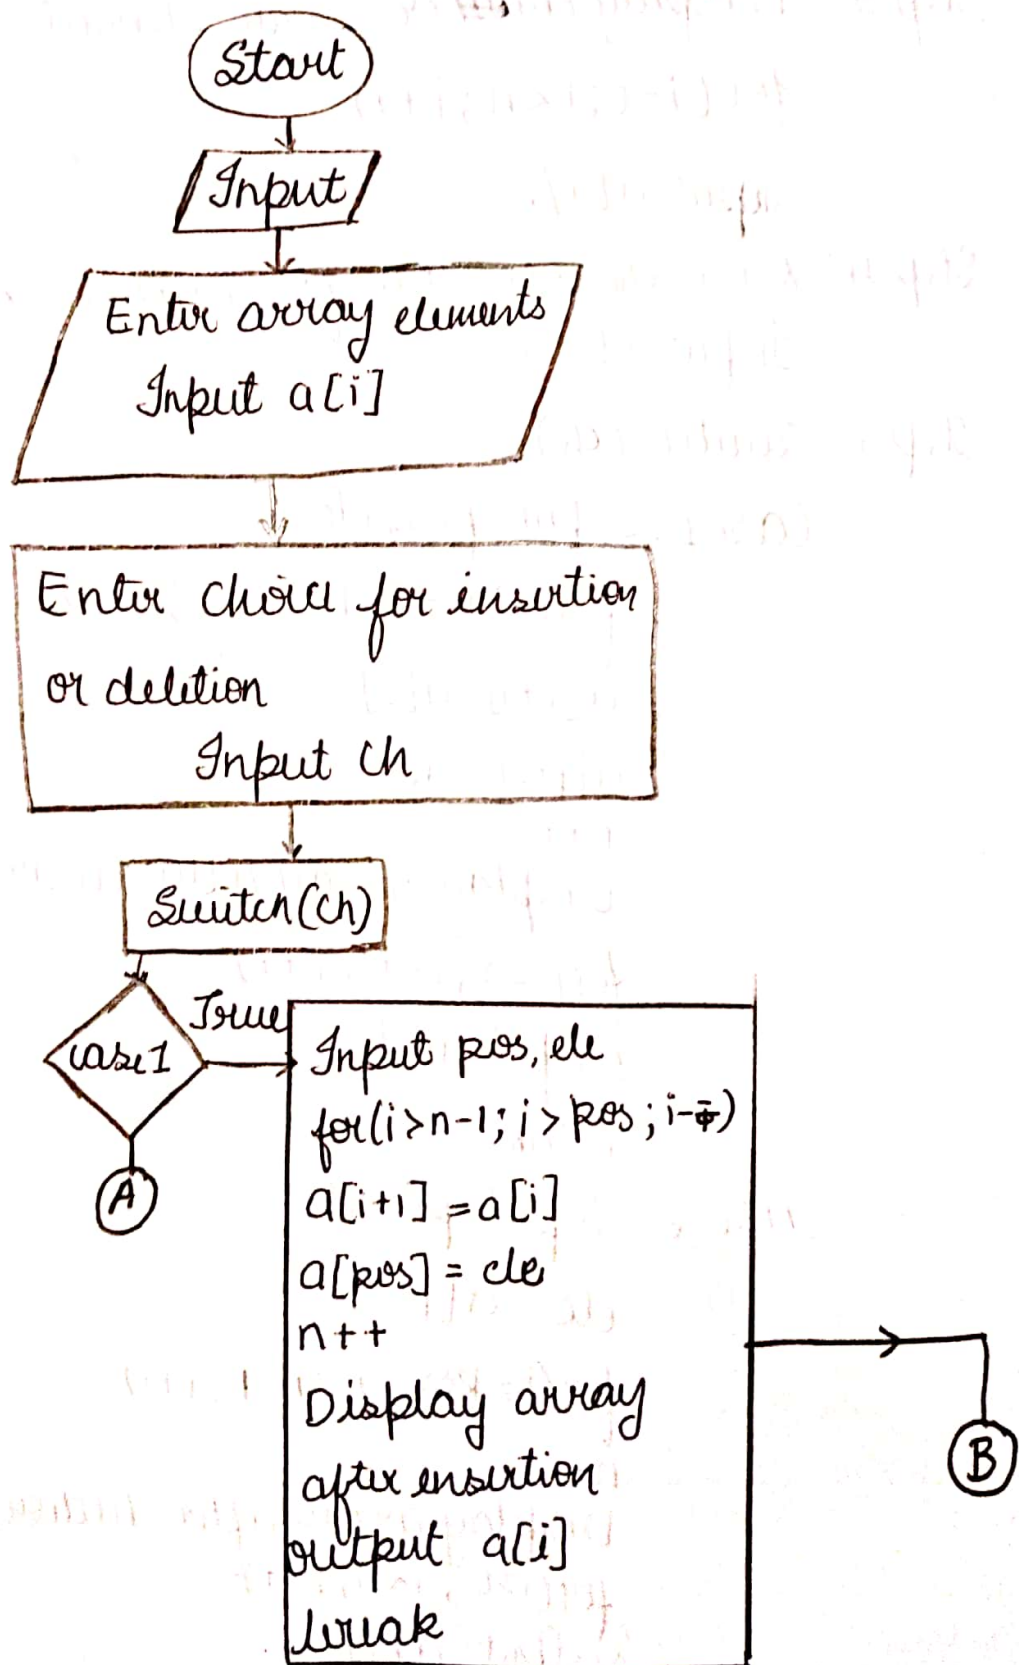 Start
Input
Enter array elements
Input a[i]
Enter choice for insertion
or deletion
Input ch
Switch(ch)
case1
True
A
Input pos, ele
for(i>n-1; i>pos; i--)
a[i+1] = a[i]
a[pos] = ele
n++
Display array
after insertion
output a[i]
break
B